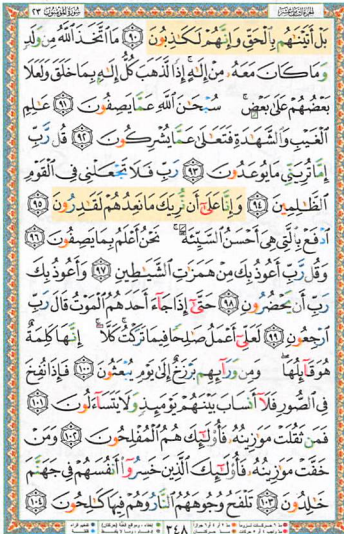 سُورَةُ المُؤْمِنُونَ ٢٣
بَلْ أَتَيْنَٰهُم بِٱلْحَقِّ وَإِنَّهُمْ لَكَٰذِبُونَ ٩٠ مَا ٱتَّخَذَ ٱللَّهُ مِن وَلَدٍ
وَمَا كَانَ مَعَهُۥ مِنْ إِلَٰهٍ إِذًا لَّذَهَبَ كُلُّ إِلَٰهٍۭ بِمَا خَلَقَ وَلَعَلَا
بَعْضُهُمْ عَلَىٰ بَعْضٍ سُبْحَٰنَ ٱللَّهِ عَمَّا يَصِفُونَ ٩١ عَٰلِمِ
ٱلْغَيْبِ وَٱلشَّهَٰدَةِ فَتَعَٰلَىٰ عَمَّا يُشْرِكُونَ ٩٢ قُل رَّبِّ
إِمَّا تُرِيَنِّى مَا يُوعَدُونَ ٩٣ رَبِّ فَلَا تَجْعَلْنِى فِى ٱلْقَوْمِ
ٱلظَّٰلِمِينَ ٩٤ وَإِنَّا عَلَىٰٓ أَن نُّرِيَكَ مَا نَعِدُهُمْ لَقَٰدِرُونَ ٩٥
ٱدْفَعْ بِٱلَّتِى هِىَ أَحْسَنُ ٱلسَّيِّئَةَ نَحْنُ أَعْلَمُ بِمَا يَصِفُونَ ٩٦
وَقُل رَّبِّ أَعُوذُ بِكَ مِنْ هَمَزَٰتِ ٱلشَّيَٰطِينِ ٩٧ وَأَعُوذُ بِكَ
رَبِّ أَن يَحْضُرُونِ ٩٨ حَتَّىٰٓ إِذَا جَآءَ أَحَدَهُمُ ٱلْمَوْتُ قَالَ رَبِّ
ٱرْجِعُونِ ٩٩ لَعَلِّىٓ أَعْمَلُ صَٰلِحًا فِيمَا تَرَكْتُ كَلَّآ إِنَّهَا كَلِمَةٌ
هُوَ قَآئِلُهَا وَمِن وَرَآئِهِم بَرْزَخٌ إِلَىٰ يَوْمِ يُبْعَثُونَ ١٠٠ فَإِذَا نُفِخَ
فِى ٱلصُّورِ فَلَآ أَنسَابَ بَيْنَهُمْ يَوْمَئِذٍ وَلَا يَتَسَآءَلُونَ ١٠١
فَمَن ثَقُلَتْ مَوَٰزِينُهُۥ فَأُو۟لَٰٓئِكَ هُمُ ٱلْمُفْلِحُونَ ١٠٢ وَمَنْ
خَفَّتْ مَوَٰزِينُهُۥ فَأُو۟لَٰٓئِكَ ٱلَّذِينَ خَسِرُوٓا۟ أَنفُسَهُمْ فِى جَهَنَّمَ
خَٰلِدُونَ ١٠٣ تَلْفَحُ وُجُوهَهُمُ ٱلنَّارُ وَهُمْ فِيهَا كَٰلِحُونَ ١٠٤
٣٤٨